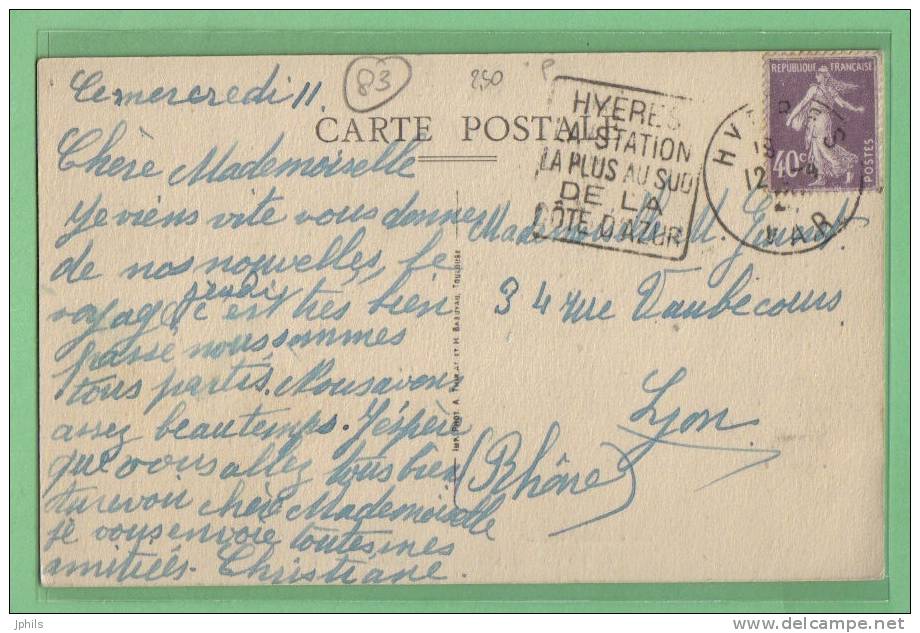 Ce mercredi 11
83
250
P
CARTE POSTALE
HYÈRES
LA STATION
LA PLUS AU SUD
DE LA
CÔTE D'AZUR
RÉPUBLIQUE FRANÇAISE
40c
POSTES
VAR
Chère Mademoiselle
Je viens vite vous donner
de nos nouvelles, le
voyage jeudi c'est très bien
passé nous sommes
tous partis. Nous avons
assez beau temps. J'éspére
que vous allez tous bien
Au revoir chère Mademoiselle
je vous envoie toutes mes
amitiés. Christiane.
Mademoiselle M.
34 rue Vaubecour
Lyon
(Rhône)
jphils
www.delcampe.net